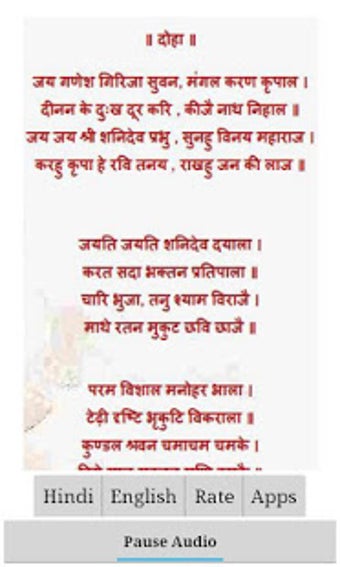 ॥ दोहा ॥
जय गणेश गिरिजा सुवन, मंगल करण कृपाल ।
दीनन के दुःख दूर करि , कीजै नाथ निहाल ॥
जय जय श्री शनिदेव प्रभु , सुनहु विनय महाराज ।
करहु कृपा हे रवि तनय , राखहु जन की लाज ॥
जयति जयति शनिदेव दयाला ।
करत सदा भक्तन प्रतिपाला ॥
चारि भुजा, तनु श्याम विराजै ।
माथे रतन मुकुट छवि छाजै ॥
परम विशाल मनोहर भाला ।
टेढ़ी दृष्टि भृकुटि विकराला ॥
कुण्डल श्रवन चमाचम चमके ।
Hindi English Rate Apps
Pause Audio